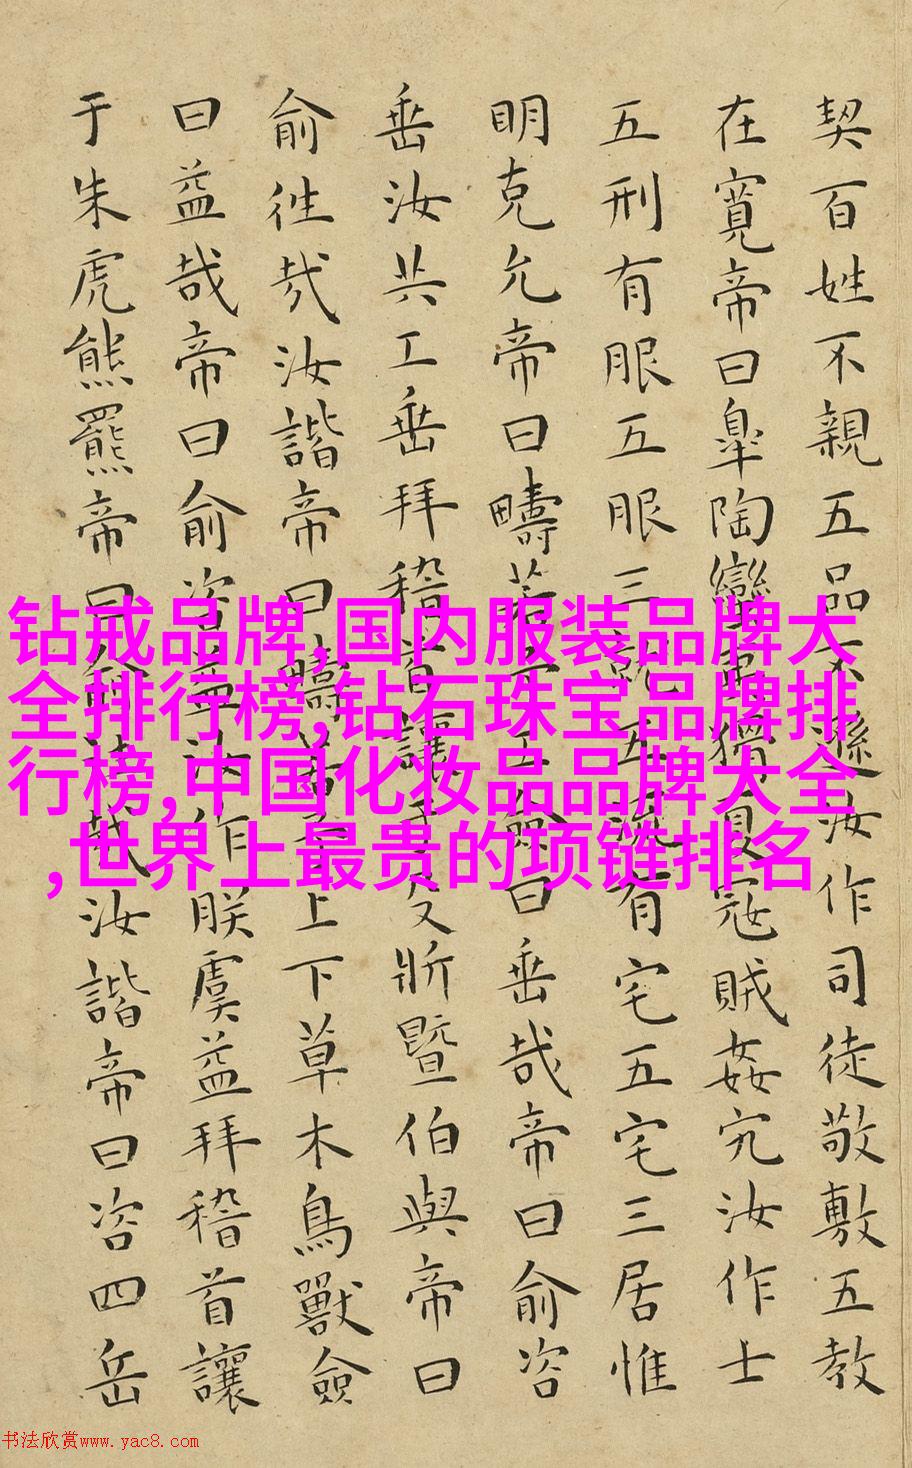 契百姓不親五品不遜汝作司徒敬敷五教
在寬帝曰皐陶蠻夷猾夏寇賊姦宄汝作士
五刑有服五服三就五流有宅五宅三居惟
明克允帝曰疇若予工僉曰垂哉帝曰俞咨
垂汝共工垂拜稽首讓于殳斨暨伯與帝曰
俞往哉汝諧帝曰疇若予上下草木鳥獸僉
曰益哉帝曰俞咨益汝作朕虞益拜稽首讓
于朱虎熊羆帝曰俞往哉汝諧帝曰咨四岳
钻戒品牌,国内服装品牌大
全排行榜,钻石珠宝品牌排
行榜,中国化妆品品牌大全
,世界上最贵的项链排名
书法欣赏www.yac8.com